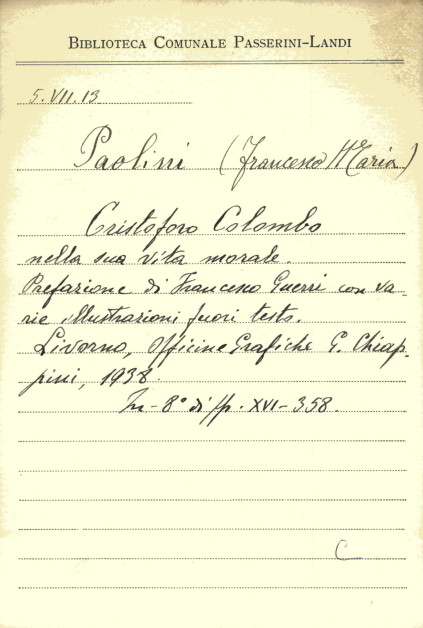 BIBLIOTECA COMUNALE PASSERINI-LANDI
5.VII.13
Paolini (Francesco Maria)
Cristoforo Colombo
nella sua vita morale.
Prefazione di Francesco Guerri con va-
rie illustrazioni fuori testo.
Livorno, Officine Grafiche G. Chiap-
pini, 1938.
In-8° di pp. XVI-358.
C